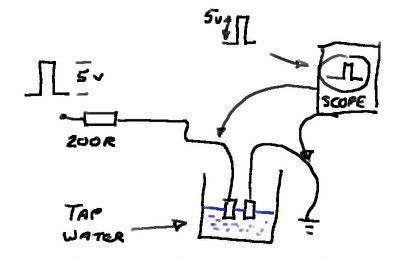 5v
5v
SCOPE
200R
TAP
WATER